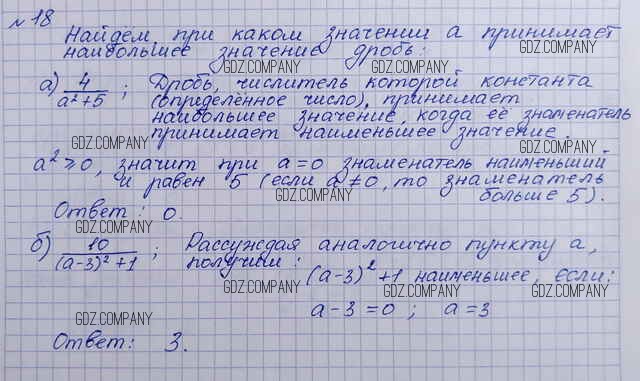 № 18
Найдем, при каком значении а принимает
наибольшее значение дробь:
GDZ.COMPANY GDZ.COMPANY GDZ.COMPANY
а) 4/(a²+5) ; Дробь, числитель которой константа
(определённое число), принимает
наибольшее значение, когда её знаменатель
принимает наименьшее значение.
GDZ.COMPANY GDZ.COMPANY
a² ≥ 0, значит при a = 0 знаменатель наименьший
и равен 5 (если a ≠ 0, то знаменатель
больше 5).
GDZ.COMPANY
Ответ: 0.
GDZ.COMPANY
б) 10/((a-3)²+1) ; Рассуждая аналогично пункту а,
получим:
(a-3)²+1 наименьшее, если:
GDZ.COMPANY GDZ.COMPANY GDZ.COMPANY
a-3=0 ; a=3
GDZ.COMPANY
Ответ: 3.